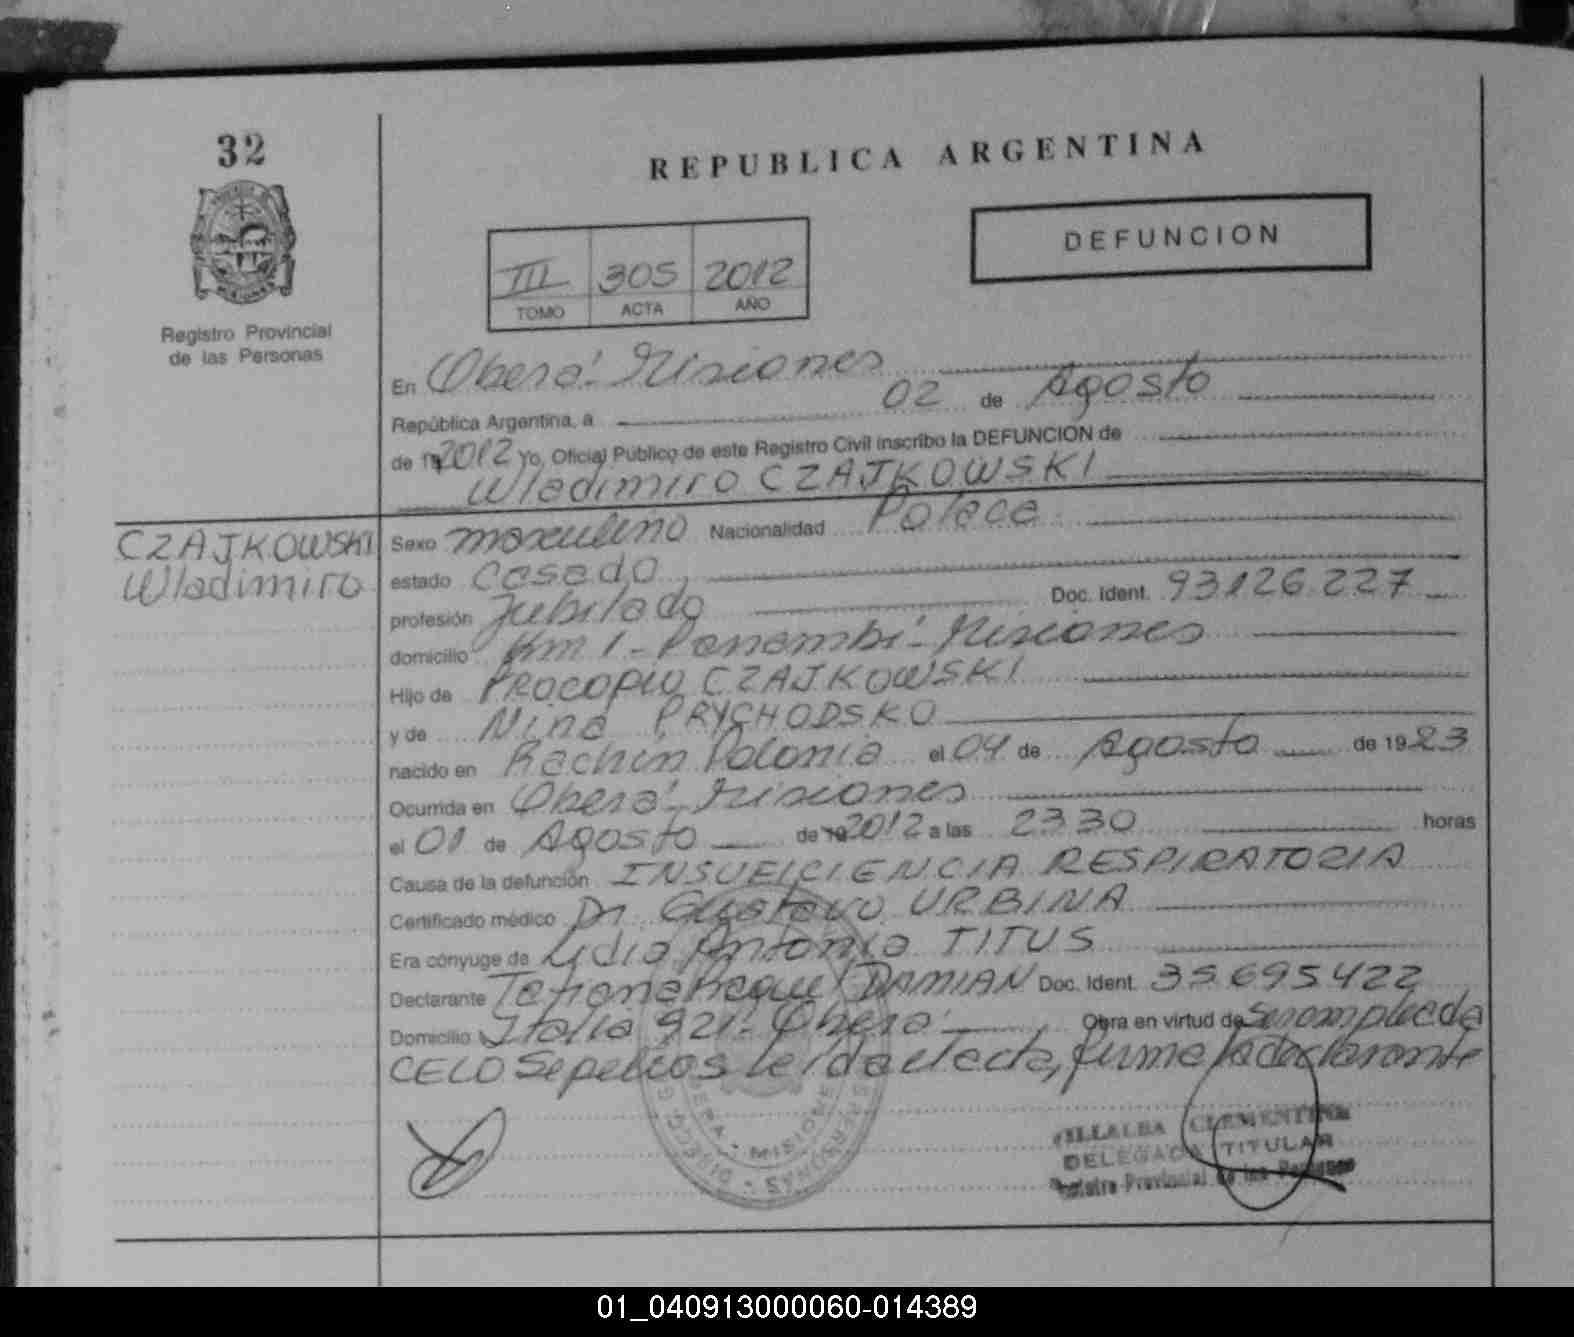 32
REPUBLICA ARGENTINA
DEFUNCION
III 305 2012
TOMO ACTA AÑO
Registro Provincial
de las Personas
En Oberá - Misiones
República Argentina, a 02 de Agosto
de 19 2012 Yo, Oficial Público de este Registro Civil inscribo la DEFUNCION de
Wladimiro CZAJKOWSKI
CZAJKOWSKI
Wladimiro
Sexo masculino Nacionalidad Polaca
estado Casado
profesión Jubilado Doc. Ident. 93126.227
domicilio Km 1 - Panambí - Misiones
Hijo de PROCOPIO CZAJKOWSKI
y de Nina PRYCHODSKO
nacido en Rachin Polonia el 04 de Agosto de 1923
Ocurrida en Oberá - Misiones
el 01 de Agosto de 19 2012 a las 23 30 horas
Causa de la defunción INSUFICIENCIA RESPIRATORIA
Certificado médico Dr. Gustavo URBINA
Era cónyuge de Lidia Antonia TITUS
Declarante Tatiana Raquel DAMIAN Doc. Ident. 35.695.422
Domicilio Italia 921 - Oberá Obra en virtud de ser empleada
CELO Sepelios Leída el acta, firma la declarante
VILLALBA CLEMENTINA
DELEGADA TITULAR
Registro Provincial de las Personas
01_040913000060-014389